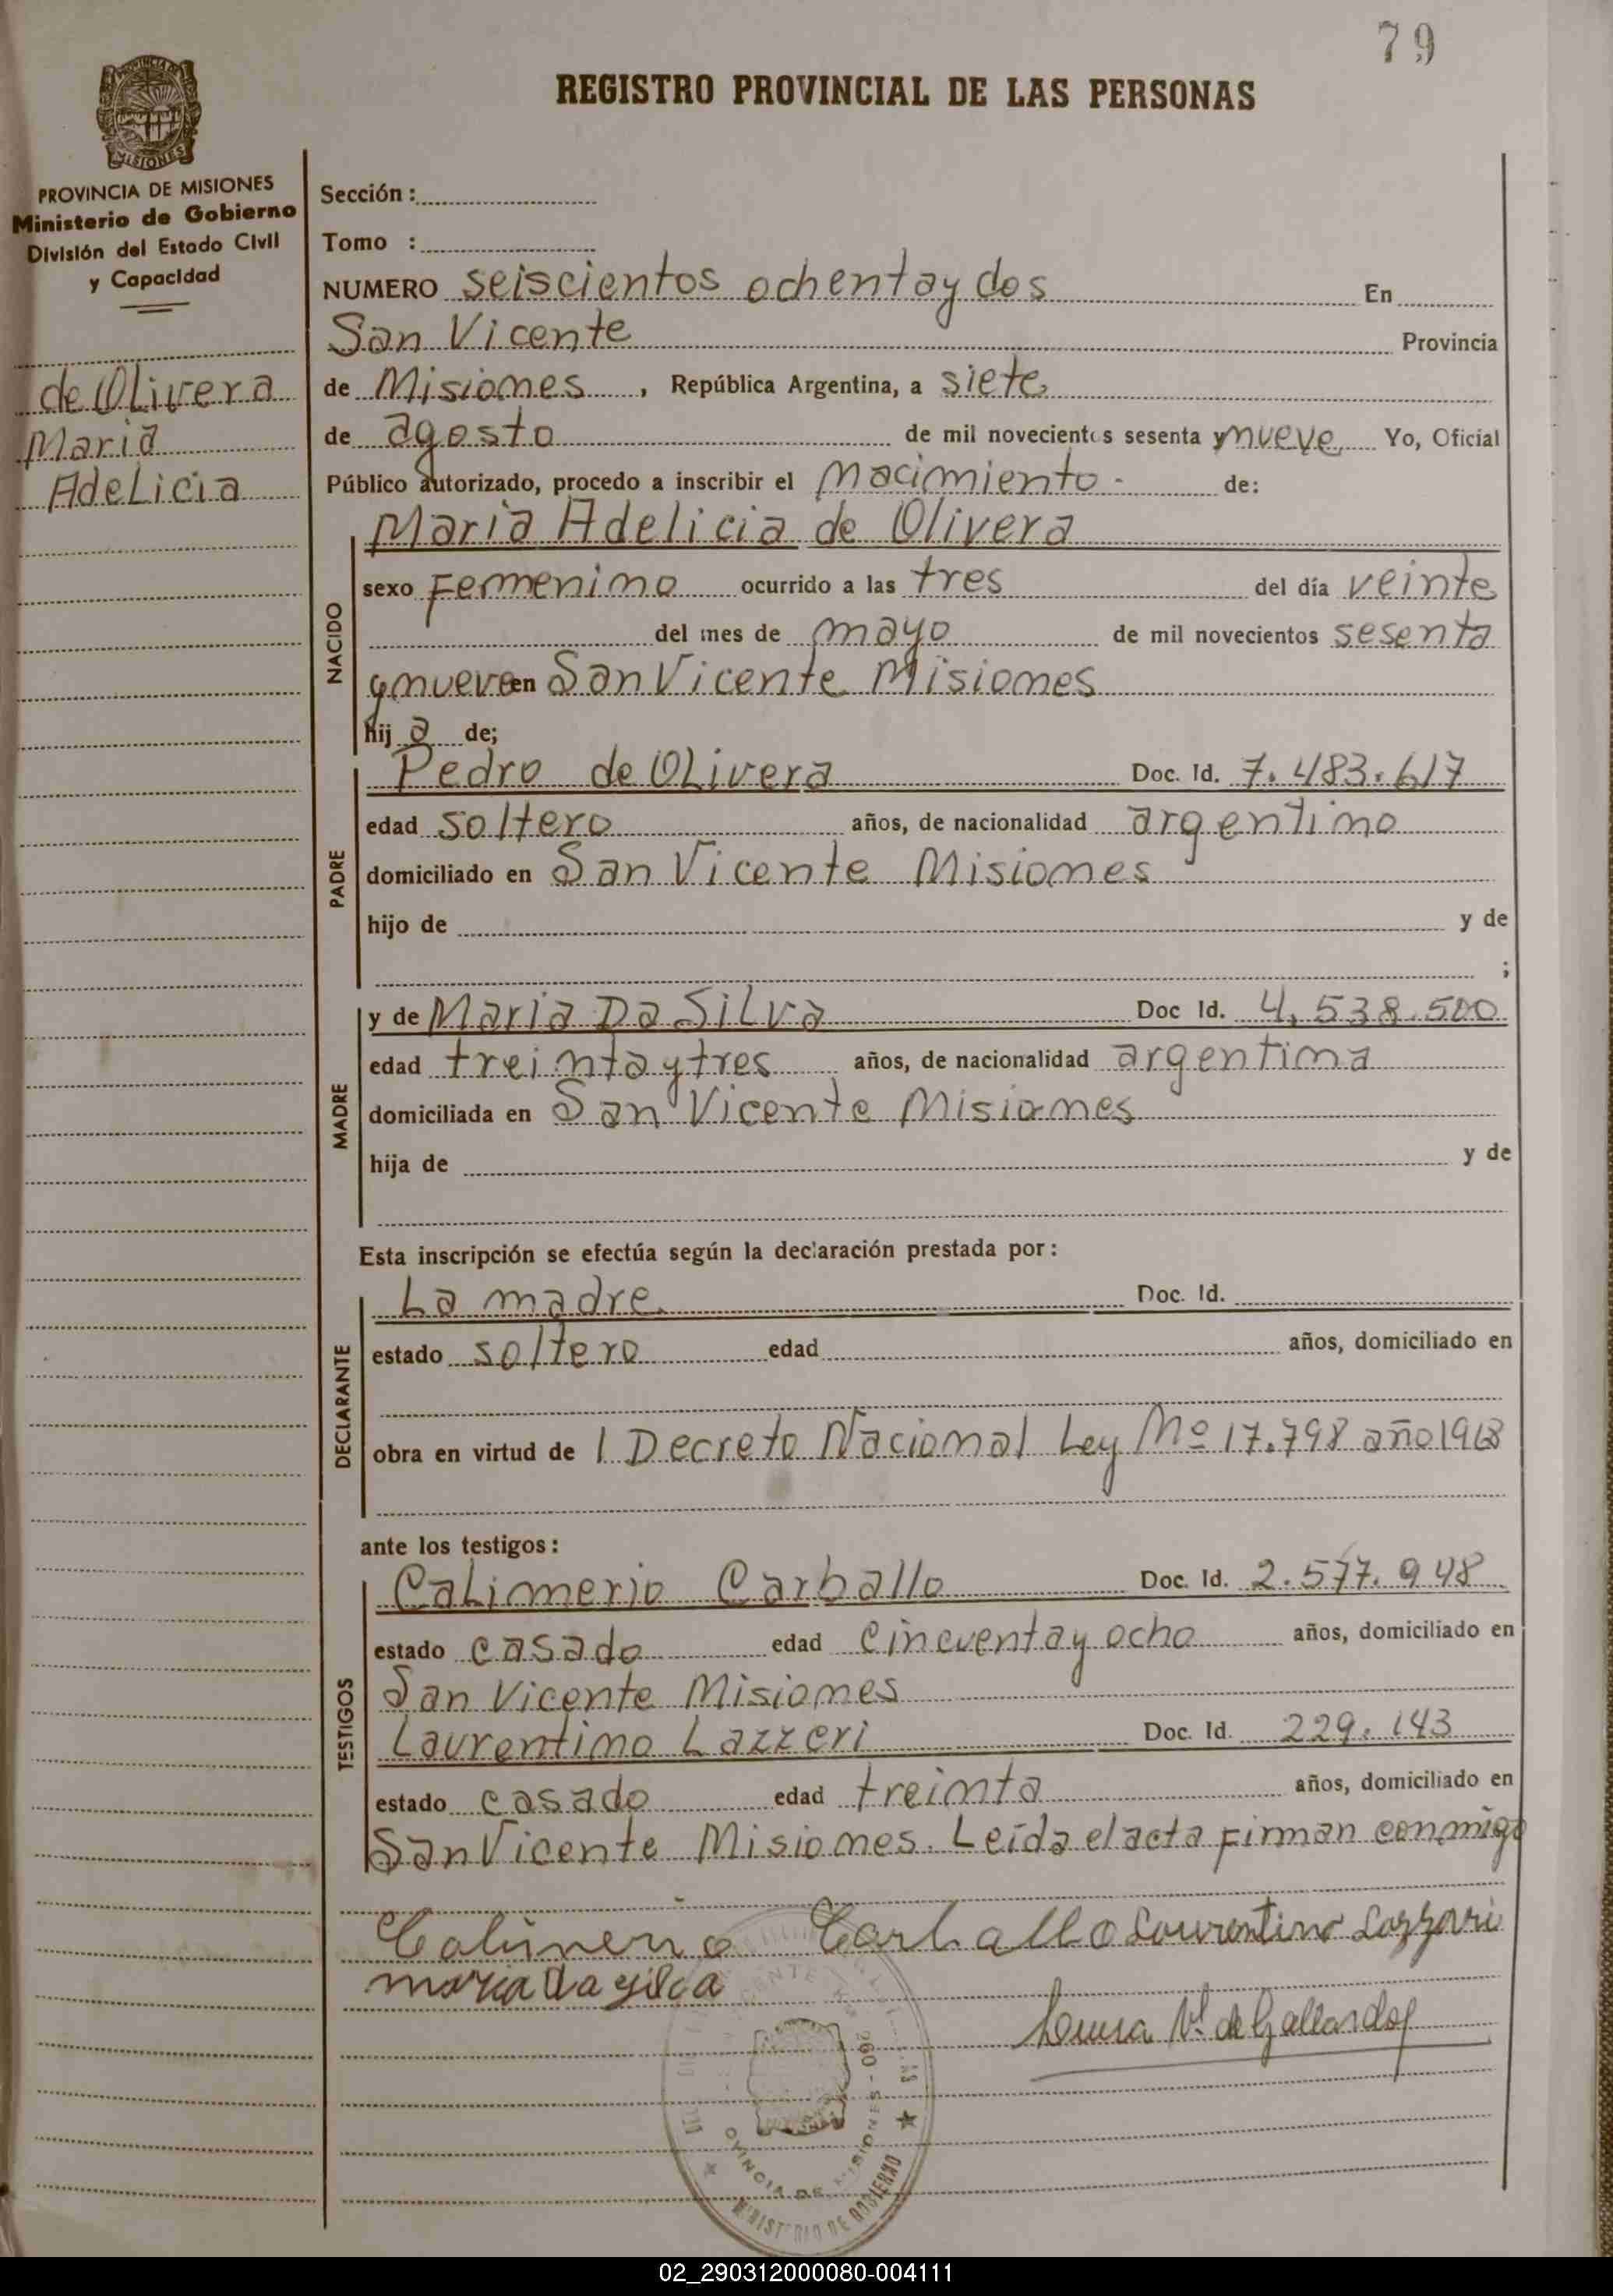 79
REGISTRO PROVINCIAL DE LAS PERSONAS
MISIONES
PROVINCIA DE MISIONES
Ministerio de Gobierno
División del Estado Civil
y Capacidad
de Olivera
Maria
Adelicia
Sección :
Tomo :
NUMERO seiscientos ochenta y dos En
San Vicente Provincia
de Misiones , República Argentina, a siete
de agosto de mil novecientos sesenta y nueve Yo, Oficial
Público autorizado, procedo a inscribir el nacimiento - de:
NACIDO
Maria Adelicia de Olivera
sexo Femenino ocurrido a las tres del día veinte
del mes de mayo de mil novecientos sesenta
y nueve en San Vicente Misiones
hij a de;
PADRE
Pedro de Olivera Doc. Id. 7.483.617
edad soltero años, de nacionalidad argentino
domiciliado en San Vicente Misiones
hijo de y de
;
MADRE
y de Maria Da Silva Doc Id. 4.538.500
edad treinta y tres años, de nacionalidad argentina
domiciliada en San Vicente Misiones
hija de y de
Esta inscripción se efectúa según la declaración prestada por:
DECLARANTE
La madre Doc. Id.
estado soltero edad años, domiciliado en
obra en virtud de l Decreto Nacional Ley Nº 17.798 año 1968
ante los testigos:
TESTIGOS
Calimerio Carballo Doc. Id. 2.577.948
estado casado edad cincuenta y ocho años, domiciliado en
San Vicente Misiones
Laurentino Lazzeri Doc. Id. 229.143
estado casado edad treinta años, domiciliado en
San Vicente Misiones. Leída el acta firman conmigo
Calimerio Carballo Laurentino Lazzari
maria Da silva
de Gallardo
PROVINCIA DE MISIONES
MINISTERIO DE GOBIERNO
02_290312000080-004111